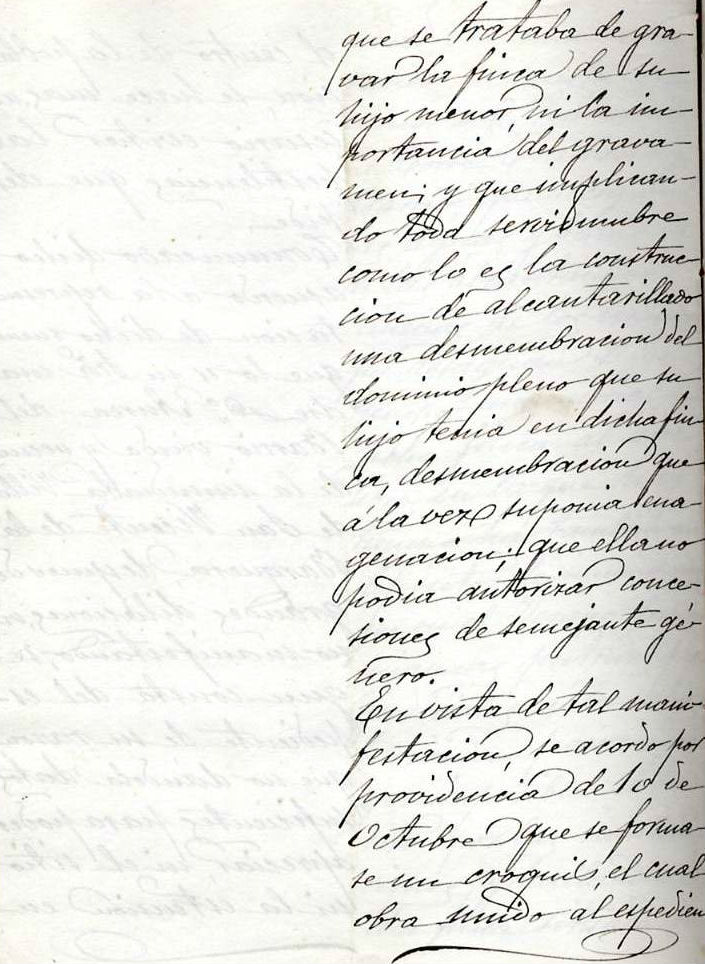 que se trataba de gra-
var la finca de su
hijo menor, ni la im-
portancia del grava-
men; y que implican-
do toda servidumbre
como lo es la construc
cion de alcantarillado
una desmembracion del
dominio pleno que su
hijo tenia en dicha fin
ca, desmembracion que
á la vez suponia ena-
genacion; que ella no
podia autorizar conce-
siones de semejante gé-
nero.
En vista de tal mani-
festacion, se acordo por
providencia de 10 de
Octubre que se forma-
se un croquis, el cual
obra unido al espedien